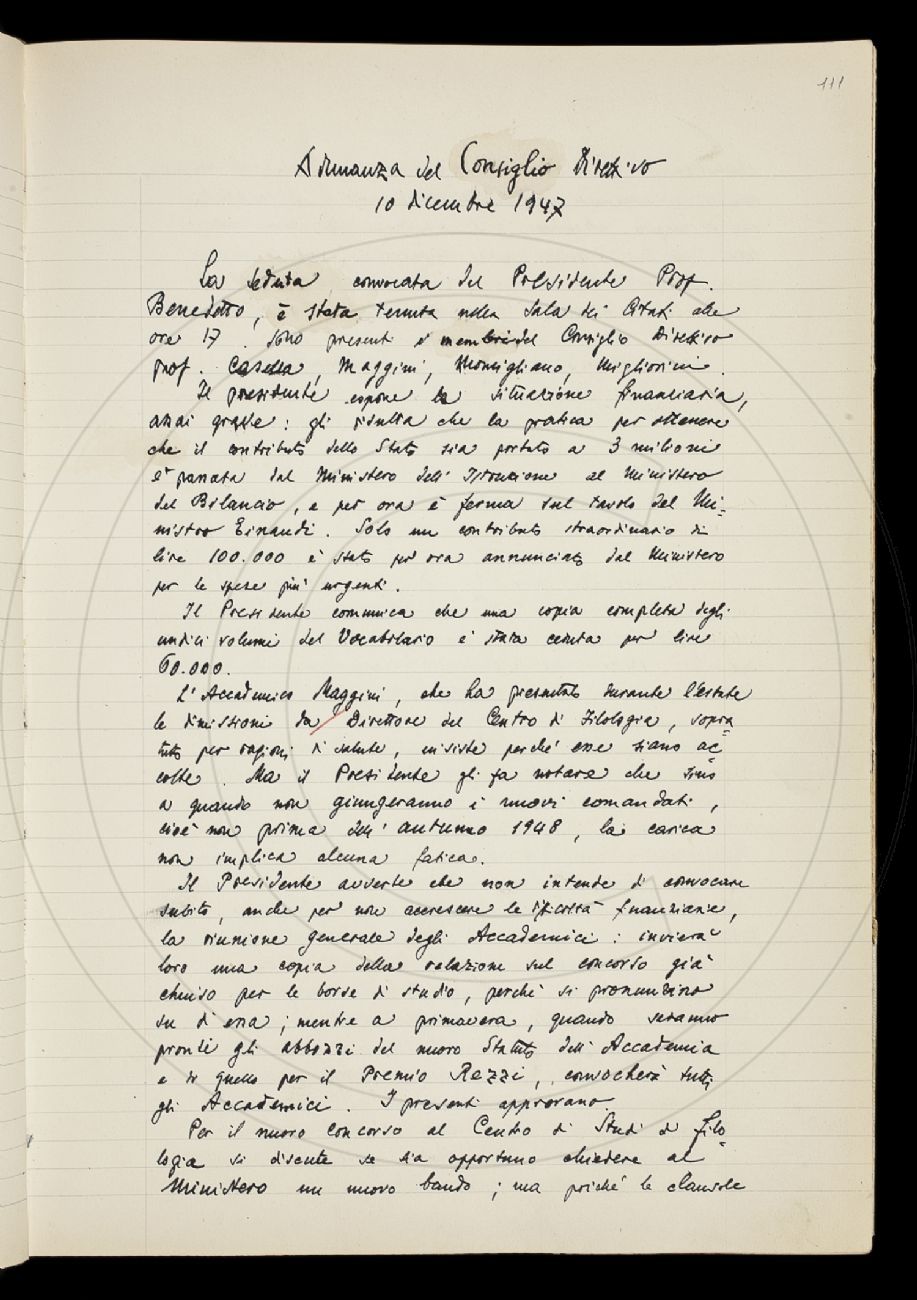 111
Adunanza del Consiglio Direttivo
10 dicembre 1947
La seduta, convocata dal Presidente Prof.
Benedetto, è stata tenuta nella Sala dei Citati alle
ore 17. Sono presenti i membri del Consiglio Direttivo
prof. Casella, Maggini, Momigliano, Migliorini.
Il presidente espone la situazione finanziaria,
assai grave: gli risulta che la pratica per ottenere
che il contributo dello Stato sia portato a 3 milioni
è passata dal Ministero dell'Istruzione al Ministero
del Bilancio, e per ora è ferma sul tavolo del Mi=
nistro Einaudi. Solo un contributo straordinario di
lire 100.000 è stato per ora annunciato dal Ministero
per le spese più urgenti.
Il Presidente comunica che una copia completa degli
undici volumi del Vocabolario è stata ceduta per lire
60.000.
L'Accademico Maggini, che ha presentato durante l'estate
le dimissioni da Direttore del Centro di Filologia, sopra=
tutto per ragioni di salute, insiste perché esse siano ac=
colte. Ma il Presidente gli fa notare che sino
a quando non giungeranno i nuovi comandati,
cioè non prima dell'autunno 1948, la carica
non implica alcuna fatica.
Il Presidente avverte che non intende di convocare
subito, anche per non accrescere le difficoltà finanziarie,
la riunione generale degli Accademici: invierà
loro una copia della relazione sul concorso già
chiuso per le borse di studio, perché si pronunzino
su di essa; mentre a primavera, quando saranno
pronti gli abbozzi del nuovo Statuto dell'Accademia
e di quello per il Premio Rezzi, convocherà tutti
gli Accademici. I presenti approvano
Per il nuovo concorso al Centro di Studi di Filo=
logia si discute se sia opportuno chiedere al
Ministero un nuovo bando; ma poiché le clausole